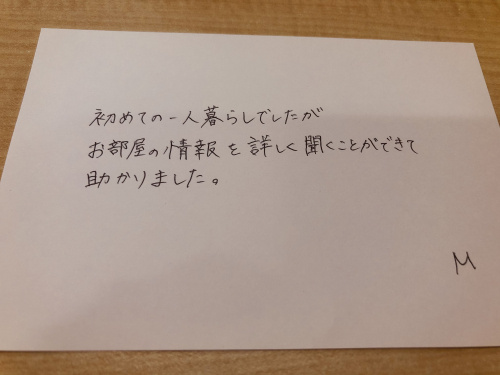 初めての一人暮らしでしたが
お部屋の情報を詳しく聞くことができて
助かりました。
M